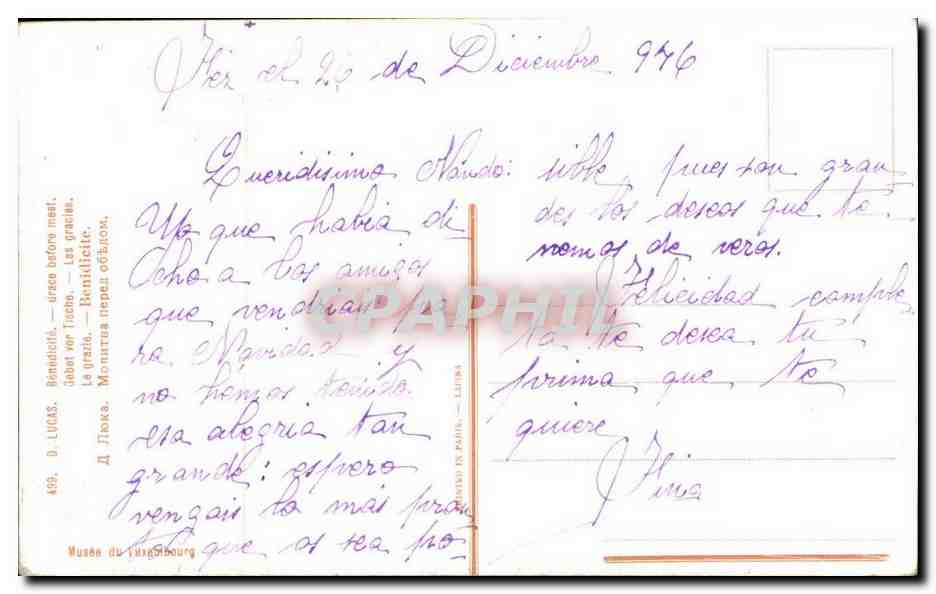 Fez el 26 de Diciembre 946
Queridisimo Nando:
Yo que habia di
cho a los amigos
que vendriais pa
ra Navidad y
no hemos tenido
esa alegria tan
grande: espero
vengais lo más pron
to que os sea po-
sible, pues son gran
des los deseos que te
nemos de veros.
Felicidad comple
ta te desea tu
prima que te
quiere
Fina
499. D. LUCAS. Bénédicité. — Grace before meat.
Gebet vor Tische. — Las gracias.
Le grazie. — Benidicite.
Д. Люка. Молитва перед обѣдом.
Musée du Luxembourg
PRINTED IN PARIS. — LAPINA
CPAPHIL